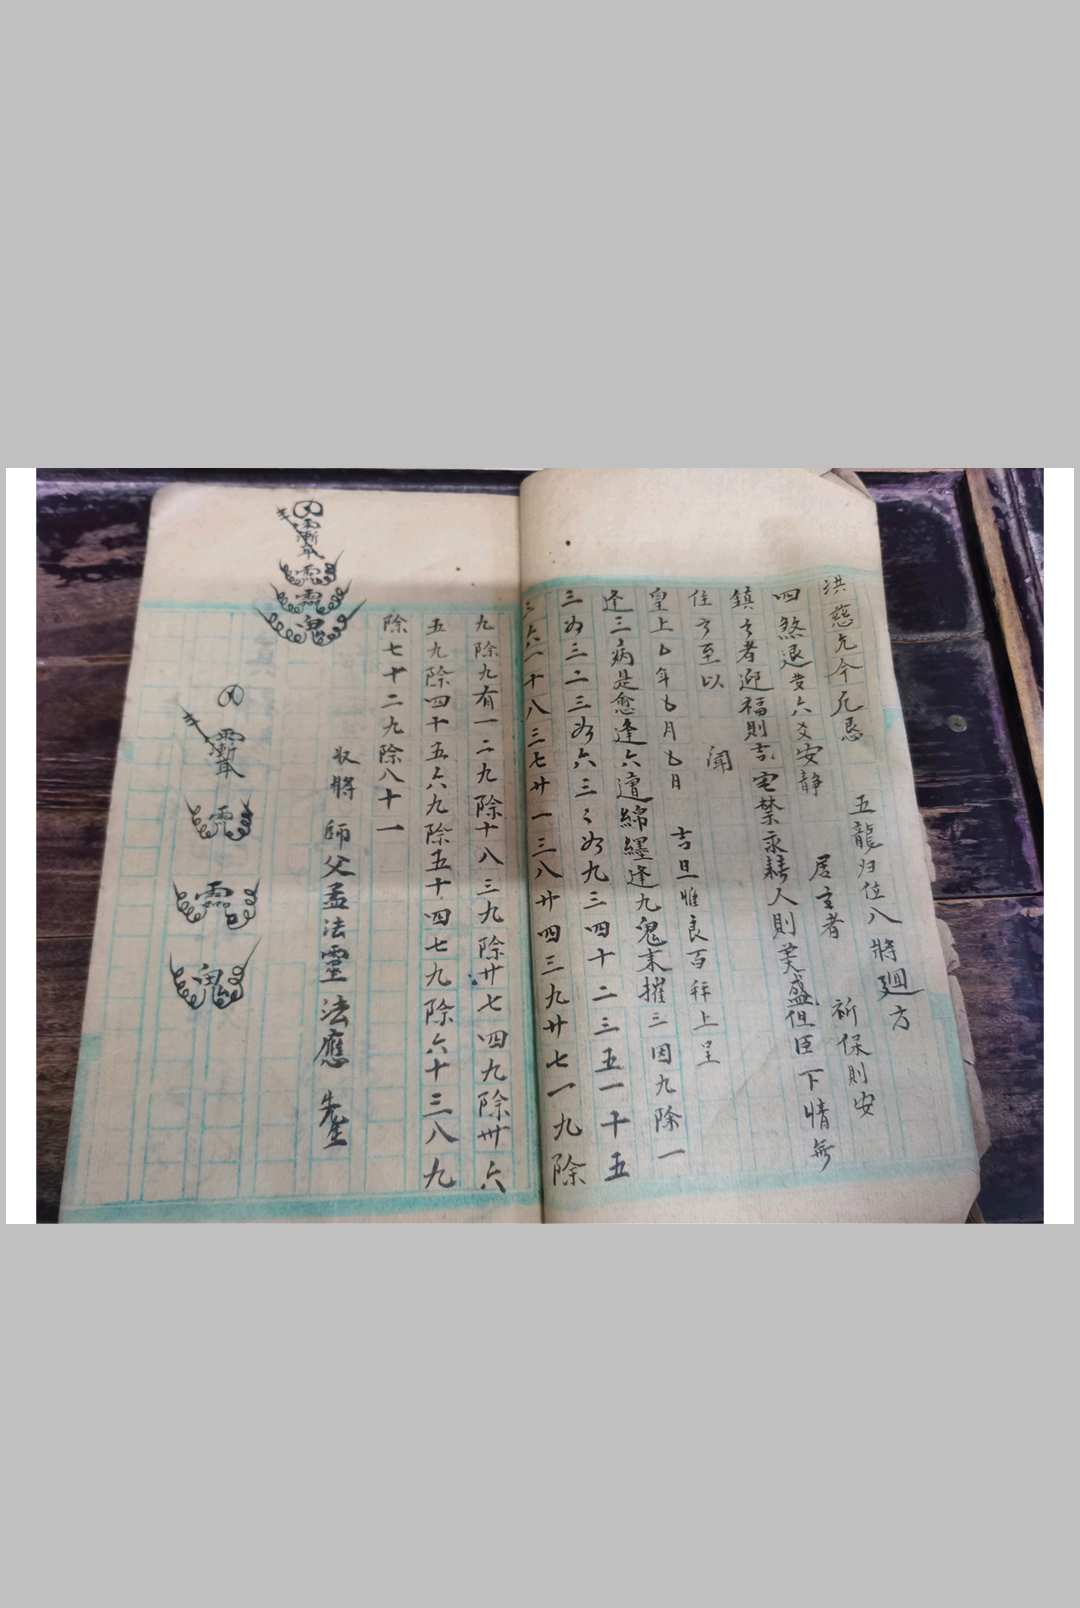 洪慈允今凡忌
五龍归位八將廻方
四煞退六爻安静
居主者
祈保則安
鎮者迎福則吉宅禁永耨人則美盛但臣下情無
任至以
聞
皇上乜年乜月乜日
吉旦惟良百拜上呈
逢三病是愈逢六遭綿纆逢九鬼未摧三因九除一
三如三二三如六三三如九三四十二三五一十五
三六一十八三七廿一三八廿四三九廿七一九除
九除九有一二九除十八三九除廿七四九除卅六
五九除四十五六九除五十四七九除六十三八九
除七十二九除八十一
収將
師父孟法靈法應